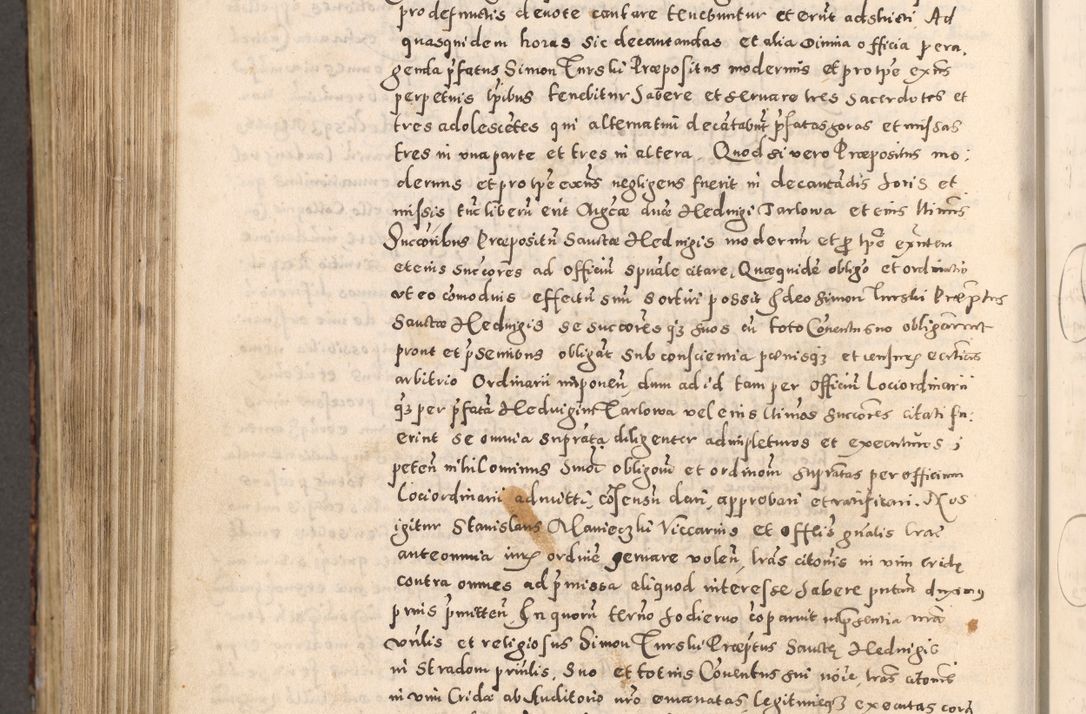 pro defunctis devote cantare tenebuntur et erūt adstricti Ad
quasquidem horas sic decantandas et alia Divina officia pera,
genda pfatus Simon Turski Præpositus modernus et pro tpe exns
perpetuis tpibus tenebitur habere et servare tres sacerdotes et
tres adolescētes qui alternatim decātabūt pfatas horas et missas
tres in una parte et tres in altera. Quod si vero Præpositus mo:
dernus et pro tpe exns negligens fuerit in decantādis horis et
missis tūc liberū erit Mgcæ dnæ Hedvigi Tarlowa et eius ltimis
Succoribus Præpositū Sanctæ Hedvigis modernū et pro tpe exntem
et eius succores ad officiū spuale citare, Quæquidē obligo et ordinatio
ut eo cōmodius effectū suū sortiri possit Ideo Simon Turski Præptus
Sanctæ Hedvigis se succores qz suos cū toto Cōventu suo obligarunt
prout et pseutibus obligāt sub conscientia pœnisqz et censuris eccticis
arbitrio Ordinarii imponen dum ad id tam per officiū Lociordinarii
qz per pfatā Hedvigim Tarlowa vel eius ltimos succores citati fu:
erint se omnia suprata diligenter adimpleturos et executuros
peten nihilominus hmōi obligom et ordinom supratas per officium
Lociordinarii admitti, cōsensū dari, approbari et ratificari. Nos
igitur Stanislaus Manieczki Viccarius et Offlis gnalis
ante omnia iuris ordine servare volen lras citonis in vim cridæ
contra omnes ad pmissa aliquod interesse habere putan
prius pmitten In quorū termo hodierno cōparuit
vnlis et religiosus Simon Turski Præptus Sanctæ Hedvigis
in Stradom pnlis, suo et totius Cōventus sui noie lras citonis
in vim Cridæ ab Auditorio nro emanatas legitimeqz executas